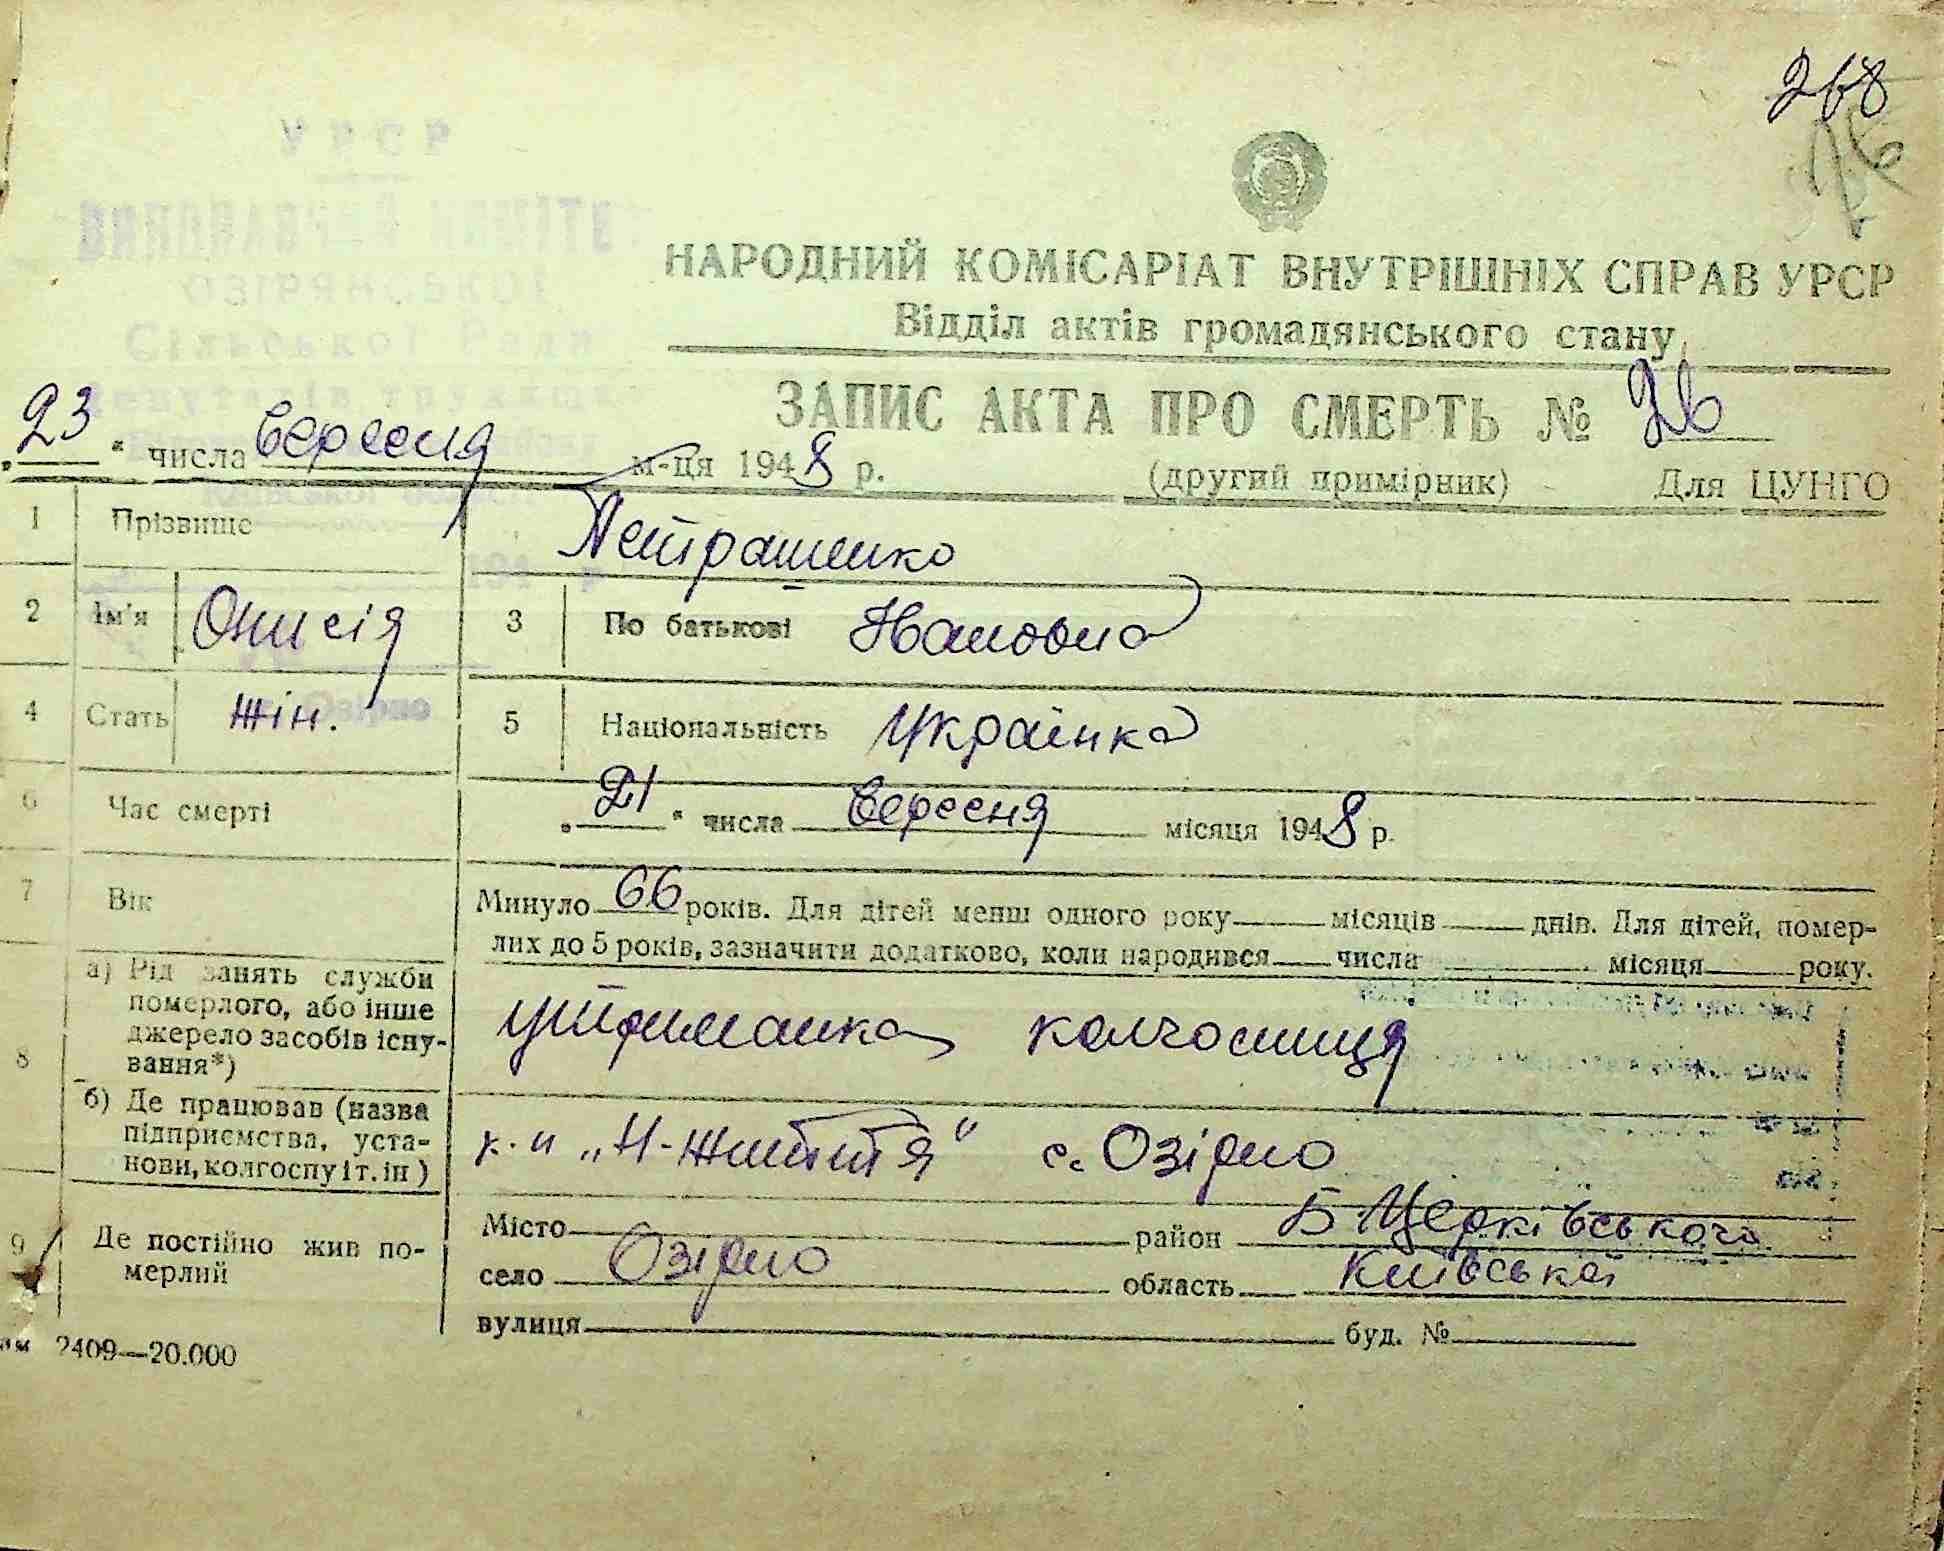 268
76
УРСР
ВИКОНАВЧИЙ КОМІТЕ
ОЗІРЯНСЬКОЇ
Сільської Ради
Депутатів трудящ
НАРОДНИЙ КОМІСАРІАТ ВНУТРІШНІХ СПРАВ УРСР
Відділ актів громадянського стану
ЗАПИС АКТА ПРО СМЕРТЬ № 26
„23“ числа Вересня м-ця 1948 р. (другий примірник) Для ЦУНГО
1 Прізвище Петрашенко
2 Ім'я Онисія 3 По батькові Івановна
4 Стать жін. 5 Національність Українка
Озірно
6 Час смерті „21“ числа Вересня місяця 1948 р.
7 Вік Минуло 66 років. Для дітей менш одного року місяців днів. Для дітей, помер-
лих до 5 років, зазначити додатково, коли народився числа місяця року.
8 а) Рід занять служби
померлого, або інше
джерело засобів існу-
вання*)
утриманка колгосниця
б) Де працював (назва
підприємства, уста-
нови, колгоспу і т. ін)
к-п „Н-життя“ с. Озірно
9 Де постійно жив по-
мерлий
Місто район Б Церківського
село Озірно область Київської
вулиця буд. №
2409—20.000